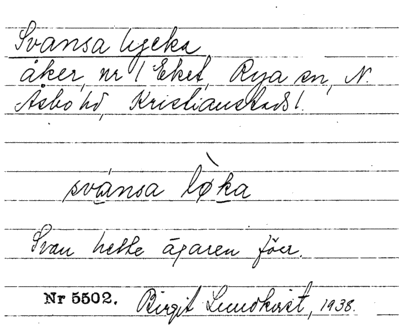 Svansa lycka
åker, nr 1 Eket, Rya sn, N.
Åsbo hd, Kristianstads l.
svánsa lø̀ka
Svan hette ägaren förr.
Nr 5502. Birgit Lundkvist, 1938.